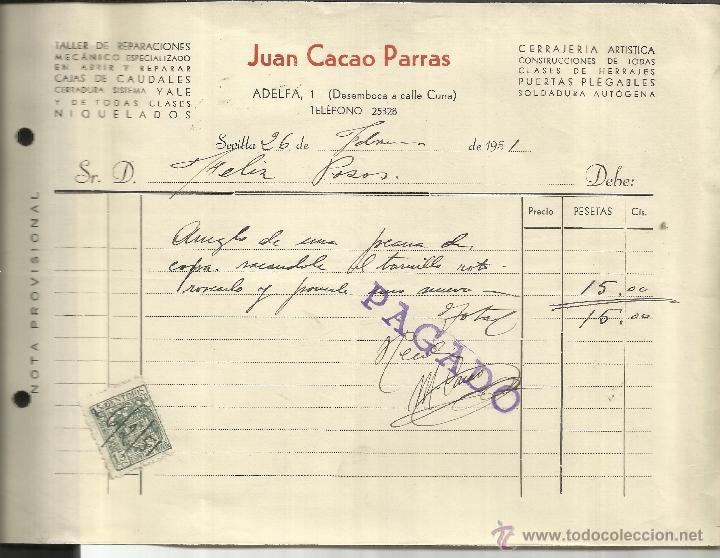 TALLER DE REPARACIONES
MECÁNICO ESPECIALIZADO
EN ABRIR Y REPARAR
CAJAS DE CAUDALES
CERRADURA SISTEMA YALE
Y DE TODAS CLASES
NIQUELADOS
Juan Cacao Parras
ADELFA, 1 (Desemboca a calle Cuna)
TELÉFONO 25328
CERRAJERIA ARTISTICA
CONSTRUCCIONES DE TODAS
CLASES DE HERRAJES
PUERTAS PLEGABLES
SOLDADURA AUTÓGENA
Sevilla 26 de Febrero de 1951
Sr. D. Felix Pozos. Debe:
NOTA PROVISIONAL
Precio PESETAS Cts.
Arreglo de una peana de
copa. sacandole el tornillo roto
y ponerle uno nuevo 15.00
Total 15.00
PAGADO
Recibí
15 CENTIMOS
15
www.todocoleccion.net